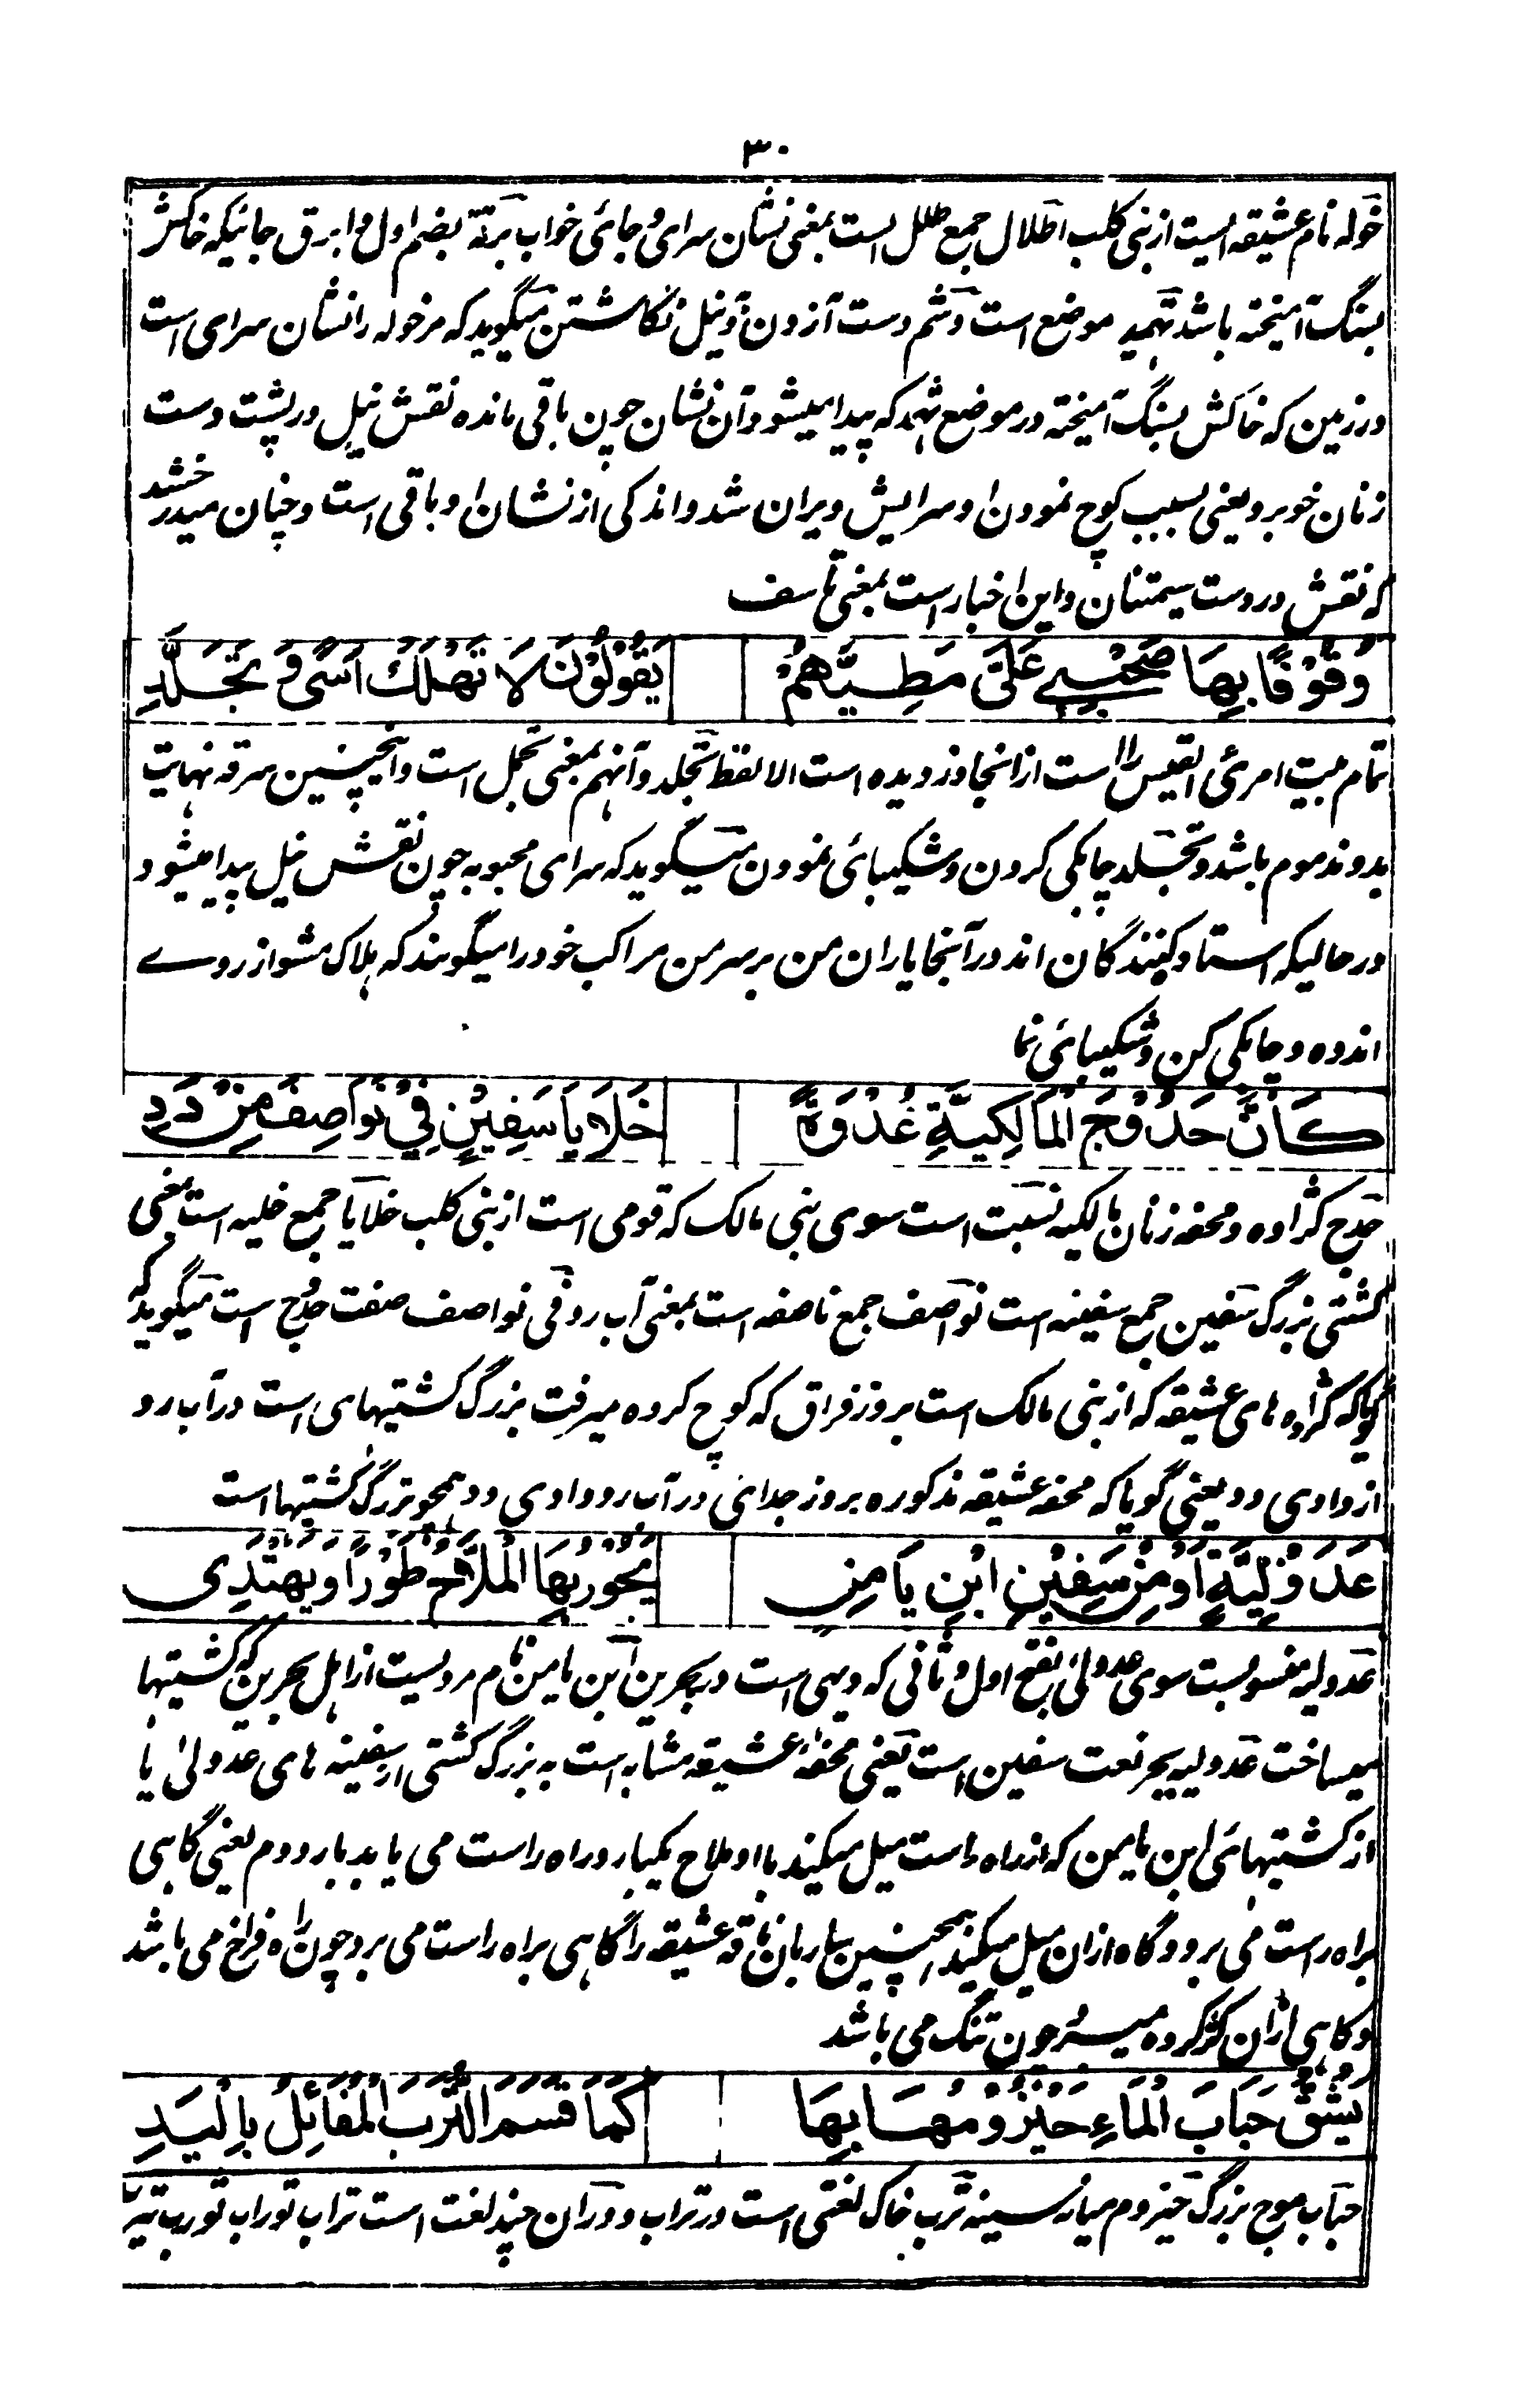 ٣٠
خوله نام عشیقه ایست از بنی کلب اطلال جمع طلل است بمعنی نشان سرای و جای خواب برقة بضم اول و ابرق جائیکه خاکش
بسنگ آمیخته باشد ثهمد موضع است وشم دست آزدون و نیل نگاشتن میگوید که مر خوله را نشان سرای است
در زمین که خاکش بسنگ آمیخته در موضع ثهمد که پیدا میشود آن نشان چون باقی مانده نقش نیل در پشت دست
زنان خوبرو یعنی بسبب کوچ نمودن او سرایش ویران شد و اندکی از نشان او باقی است و چنان میدرخشد
که نقش در دست سیمتنان و این اخبار است بمعنی تاسف
وُقُوْفًا بِهَا صَحْبِيْ عَلَيَّ مَطِيَّهُمْ يَقُوْلُوْنَ لَا تَهْلَكْ اَسًى وَ تَجَلَّدِ
تمام بیت امرئ القیس را است از انجا دزدیده است الا لفظ تجلد و آنهم بمعنی تجمل است و اینچنین سرقه نهایت
بد و مذموم باشد و تجلد چابکی کردن و شکیبائی نمودن میگوید که سرای محبوبه چون نقش نیل پیدا میشود
در حالیکه استاد کنندگان اند در آنجا یاران من بر سر من مراکب خود را میگویند که هلاک مشو از روے
اندوه و چابکی کن و شکیبائی نما
كَاَنَّ حَدُوْجَ الْمَالِكِيَّةِ غُدْوَةً خَلَايَا سَفِيْنٍ فِيْ نَوَاصِفَ مِنْ دَدِ
حدج کژاوه و محفه زنان مالکیه نسبت است سوی بنی مالک که قومی است از بنی کلب خلایا جمع خلیه است بمعنی
کشتی بزرگ سفین جمع سفینه است نواصف جمع ناصفه است بمعنی آب رو و فی نواصف صفت حدج است میگوید که
گویا که کژاوه های عشیقه که از بنی مالک است بروز فراق که کوچ کرده میرفت بزرگ کشتیهای است در آب رو
از وادی دد یعنی گویا که محفه عشیقه مذکوره بروز جدائی در آب رو وادی دد همچو بزرگ کشتیها است
عَدَوْلِيَّةٍ اَوْ مِنْ سَفِيْنِ ابْنِ يَامِنٍ يَجُوْرُ بِهَا الْمَلَّاحُ طَوْرًا وَ يَهْتَدِى
عدولیه منسوبست سوی عدولی بفتح اول و ثانی که دیهی است در بحرین ابن یامن نام مردیست از اهل بحرین که کشتیها
میساخت عدولیه بجر نعت سفین است یعنی محفهٔ عشیقه مشابه است به بزرگ کشتی از سفینه های عدولی یا
از کشتیهای ابن یامن که از راه راست میل میکند با او ملاح یکبار و راه راست می یابد بار دوم یعنی گاهی
براه راست می برد و گاه ازان میل میکند همچنین ساربان ناقه عشیقه را گاهی براه راست می برد چون راه فراخ می باشد
و گاهی ازان کژ کرده میبرد چون تنگ می باشد
يَشُقُّ حَبَابَ الْمَاءِ حَيْزُوْمُهَا بِهَا كَمَا قَسَمَ التُّرْبَ الْمُفَائِلُ بِالْيَدِ
حباب موج بزرگ حیزوم میانه سینه ترب خاک لغتی است در تراب و در ان چند لغت است تراب توراب تورب